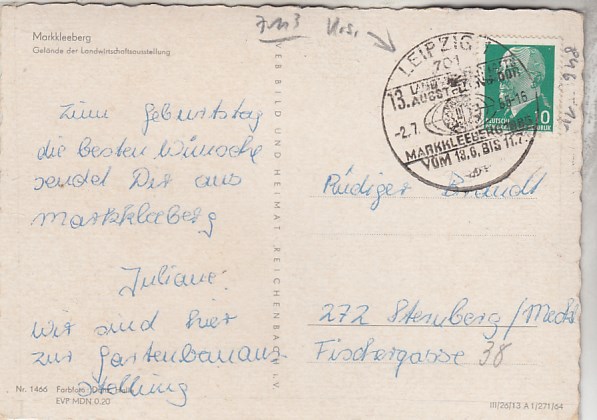 Markkleeberg
Gelände der Landwirtschaftsausstellung
Zum Geburtstag
die besten Wünsche
sendet Dir aus
Markkleeberg
Juliane.
Wir sind hier
zur Gartenbauaus-
stellung
Nr. 1466
EVP MDN 0,20
VEB BILD UND HEIMAT REICHENBACH I. V.
LEIPZIG
701
13. LANDW.
AUSSTELLUNG DDR
-2.7.
-16
MARKKLEEBERG
VOM 13.6. BIS 11.7.
DEUTSCHE
10
Rüdiger Brandt
272 Sternberg/Meckl
Fischergasse 38
III/26/13 A 1/271/64